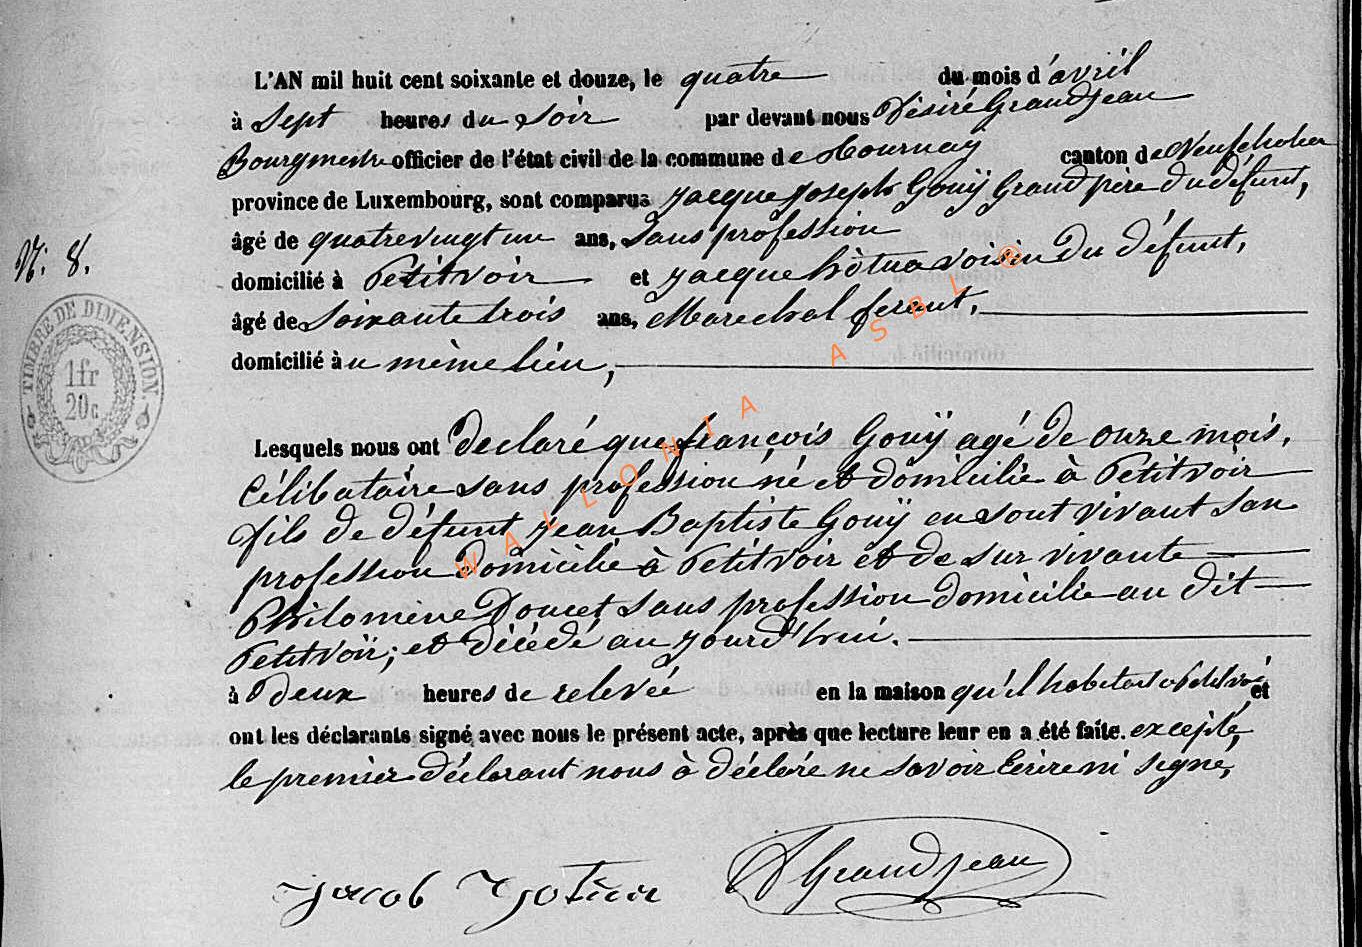 L'AN mil huit cent soixante et douze, le quatre du mois d'avril
à Sept heures du Soir par devant nous Désiré Grandjean
Bourgmestre officier de l'état civil de la commune de Tournay canton de Neufchateau
province de Luxembourg, sont comparus Jacque Joseph Gouÿ Grand père du défunt,
âgé de quatrevingt un ans, Sans profession
domicilié à Petitvoir et Jacque hotua voisin Du défunt,
âgé de Soixante trois ans, Marechal ferent,
domicilié àu même lieu,
N: 8.
TIMBRE DE DIMENSION.
1fr
20c
Lesquels nous ont declaré que françois Gouÿ agé de onze mois,
Célibataire sans profession né et domicilié à Petitvoir
fils de défunt Jean Baptiste Gouÿ en sont vivant San
profession Domicilié à Petitvoir et de sur vivante
Philomène Doucet sans profession domicilie au dit
Petitvoir; et décédé au jourd'hui.
à Deux heures de relevée en la maison qu'il habitait et
ont les déclarants signé avec nous le présent acte, après que lecture leur en a été faite. excepté,
le premier déclarant nous à déclaré ne savoir Ecrire ni signé,
Jacob DGrandjean
WALLONIA ASBL ®